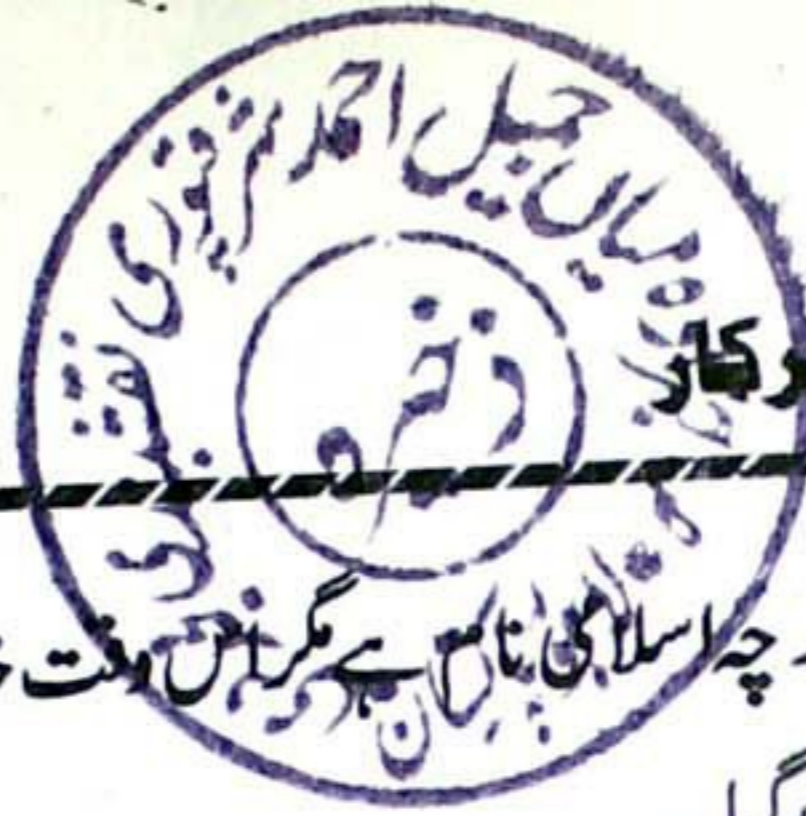 میاں جمیل احمد شرقپوری نقشبندی
ذخیرہ
رکار
چہ اسلامی نام ہے مگر اس وقت
گیا